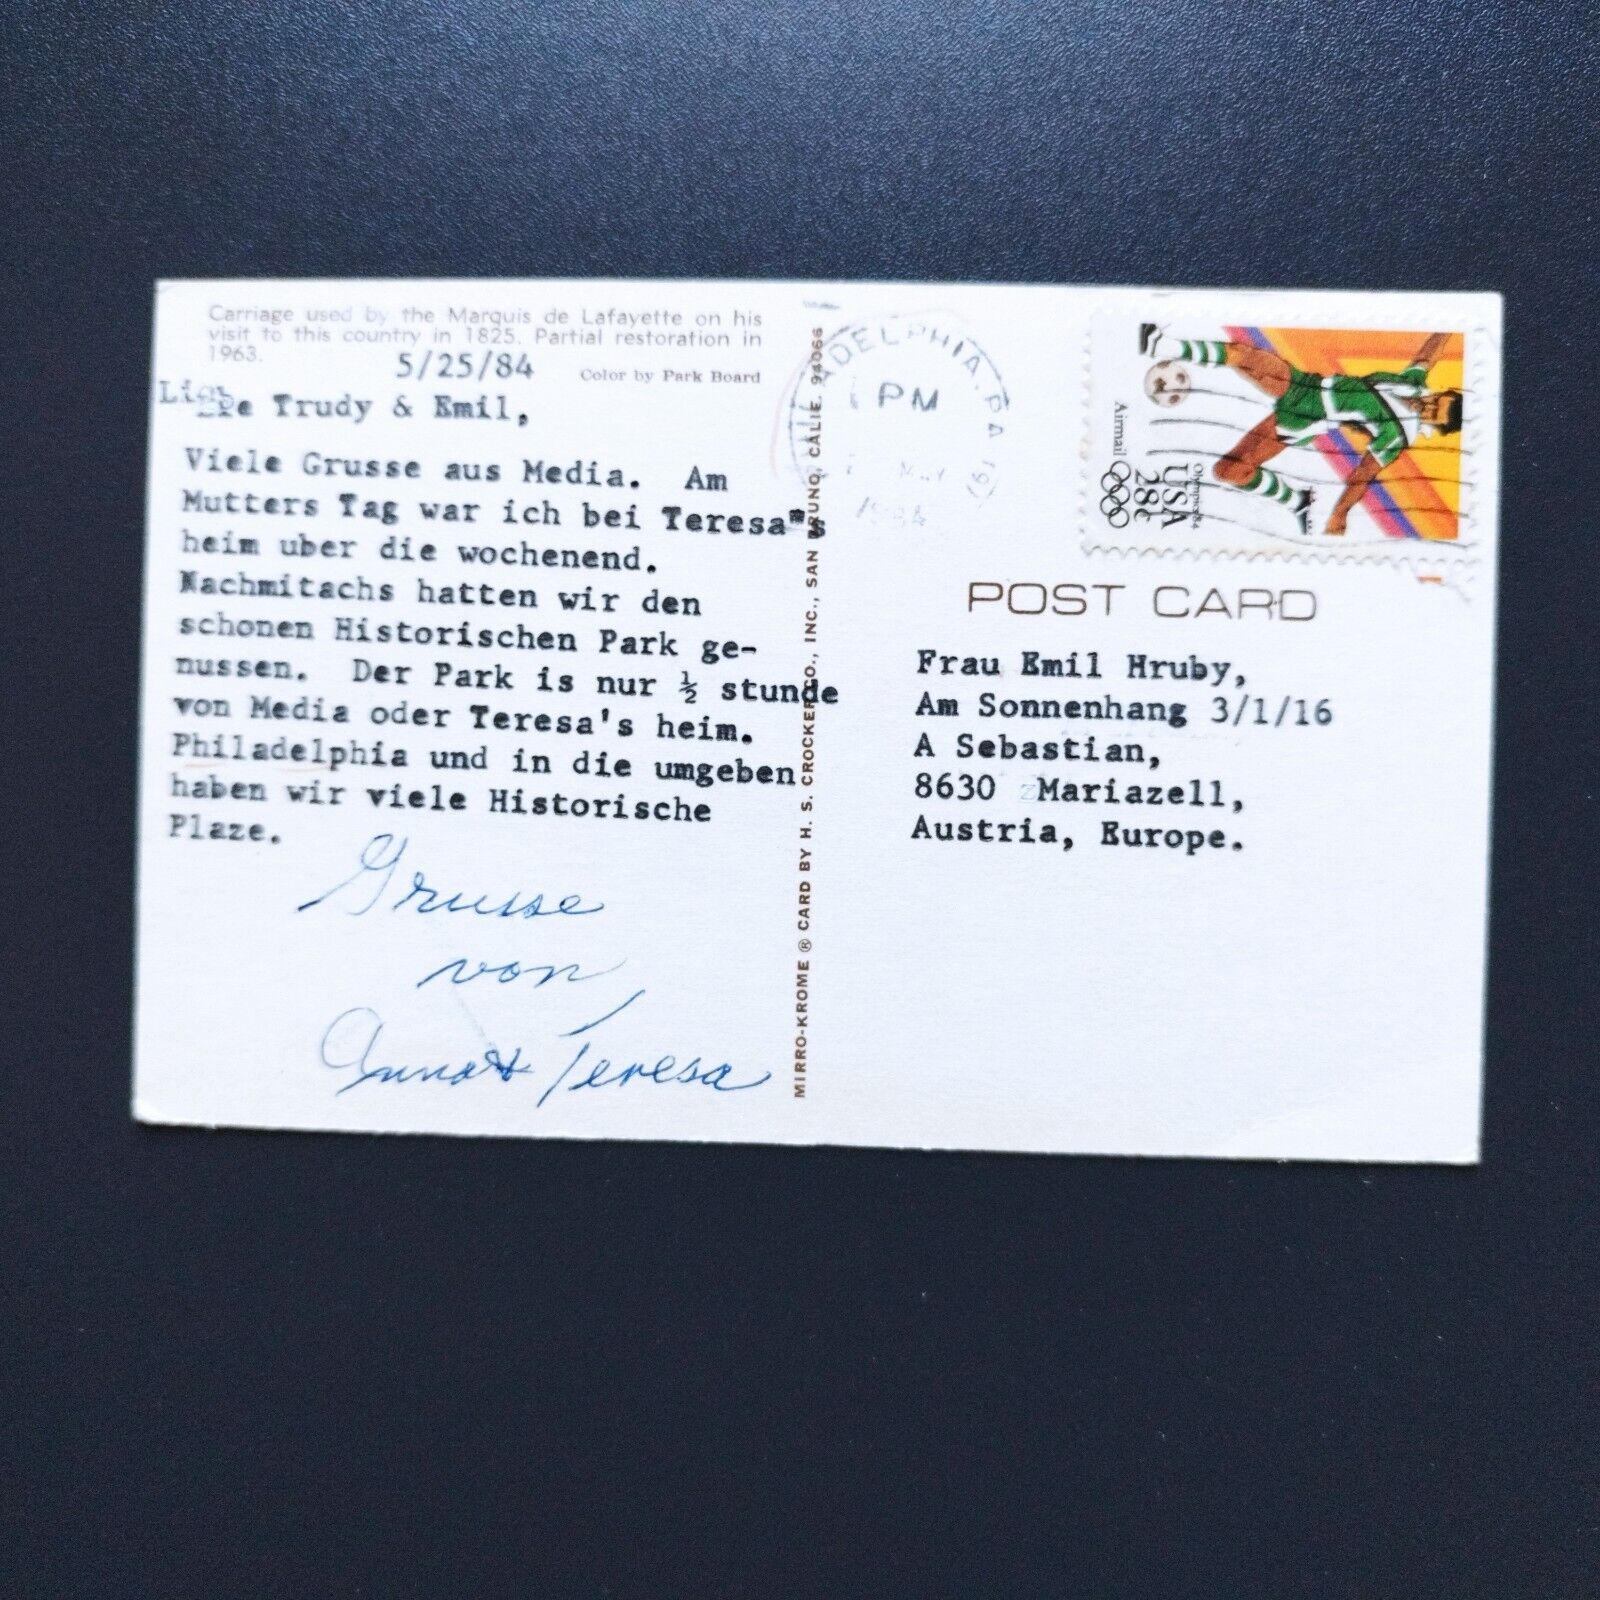 Carriage used by the Marquis de Lafayette on his
visit to this country in 1825. Partial restoration in
1963.
Color by Park Board
5/25/84
Liebe Trudy & Emil,
Viele Grusse aus Media. Am
Mutters Tag war ich bei Teresa"s
heim uber die wochenend.
Nachmitachs hatten wir den
schonen Historischen Park ge-
nussen. Der Park is nur ½ stunde
von Media oder Teresa's heim.
Philadelphia und in die umgeben
haben wir viele Historische
Plaze.
Grusse
von,
Anna & Teresa
MIRRO-KROME ® CARD BY H. S. CROCKER CO., INC., SAN BRUNO, CALIF. 94066
ADELPHIA, PA 191
PM
1984
Olympics 84
USA
28c
Airmail
POST CARD
Frau Emil Hruby,
Am Sonnenhang 3/1/16
A Sebastian,
8630 Mariazell,
Austria, Europe.